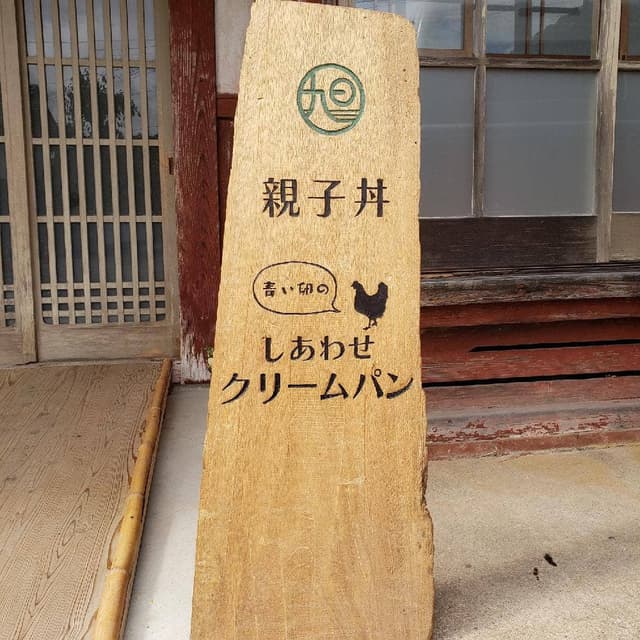 旭
親子丼
青い卵の
しあわせ
クリームパン